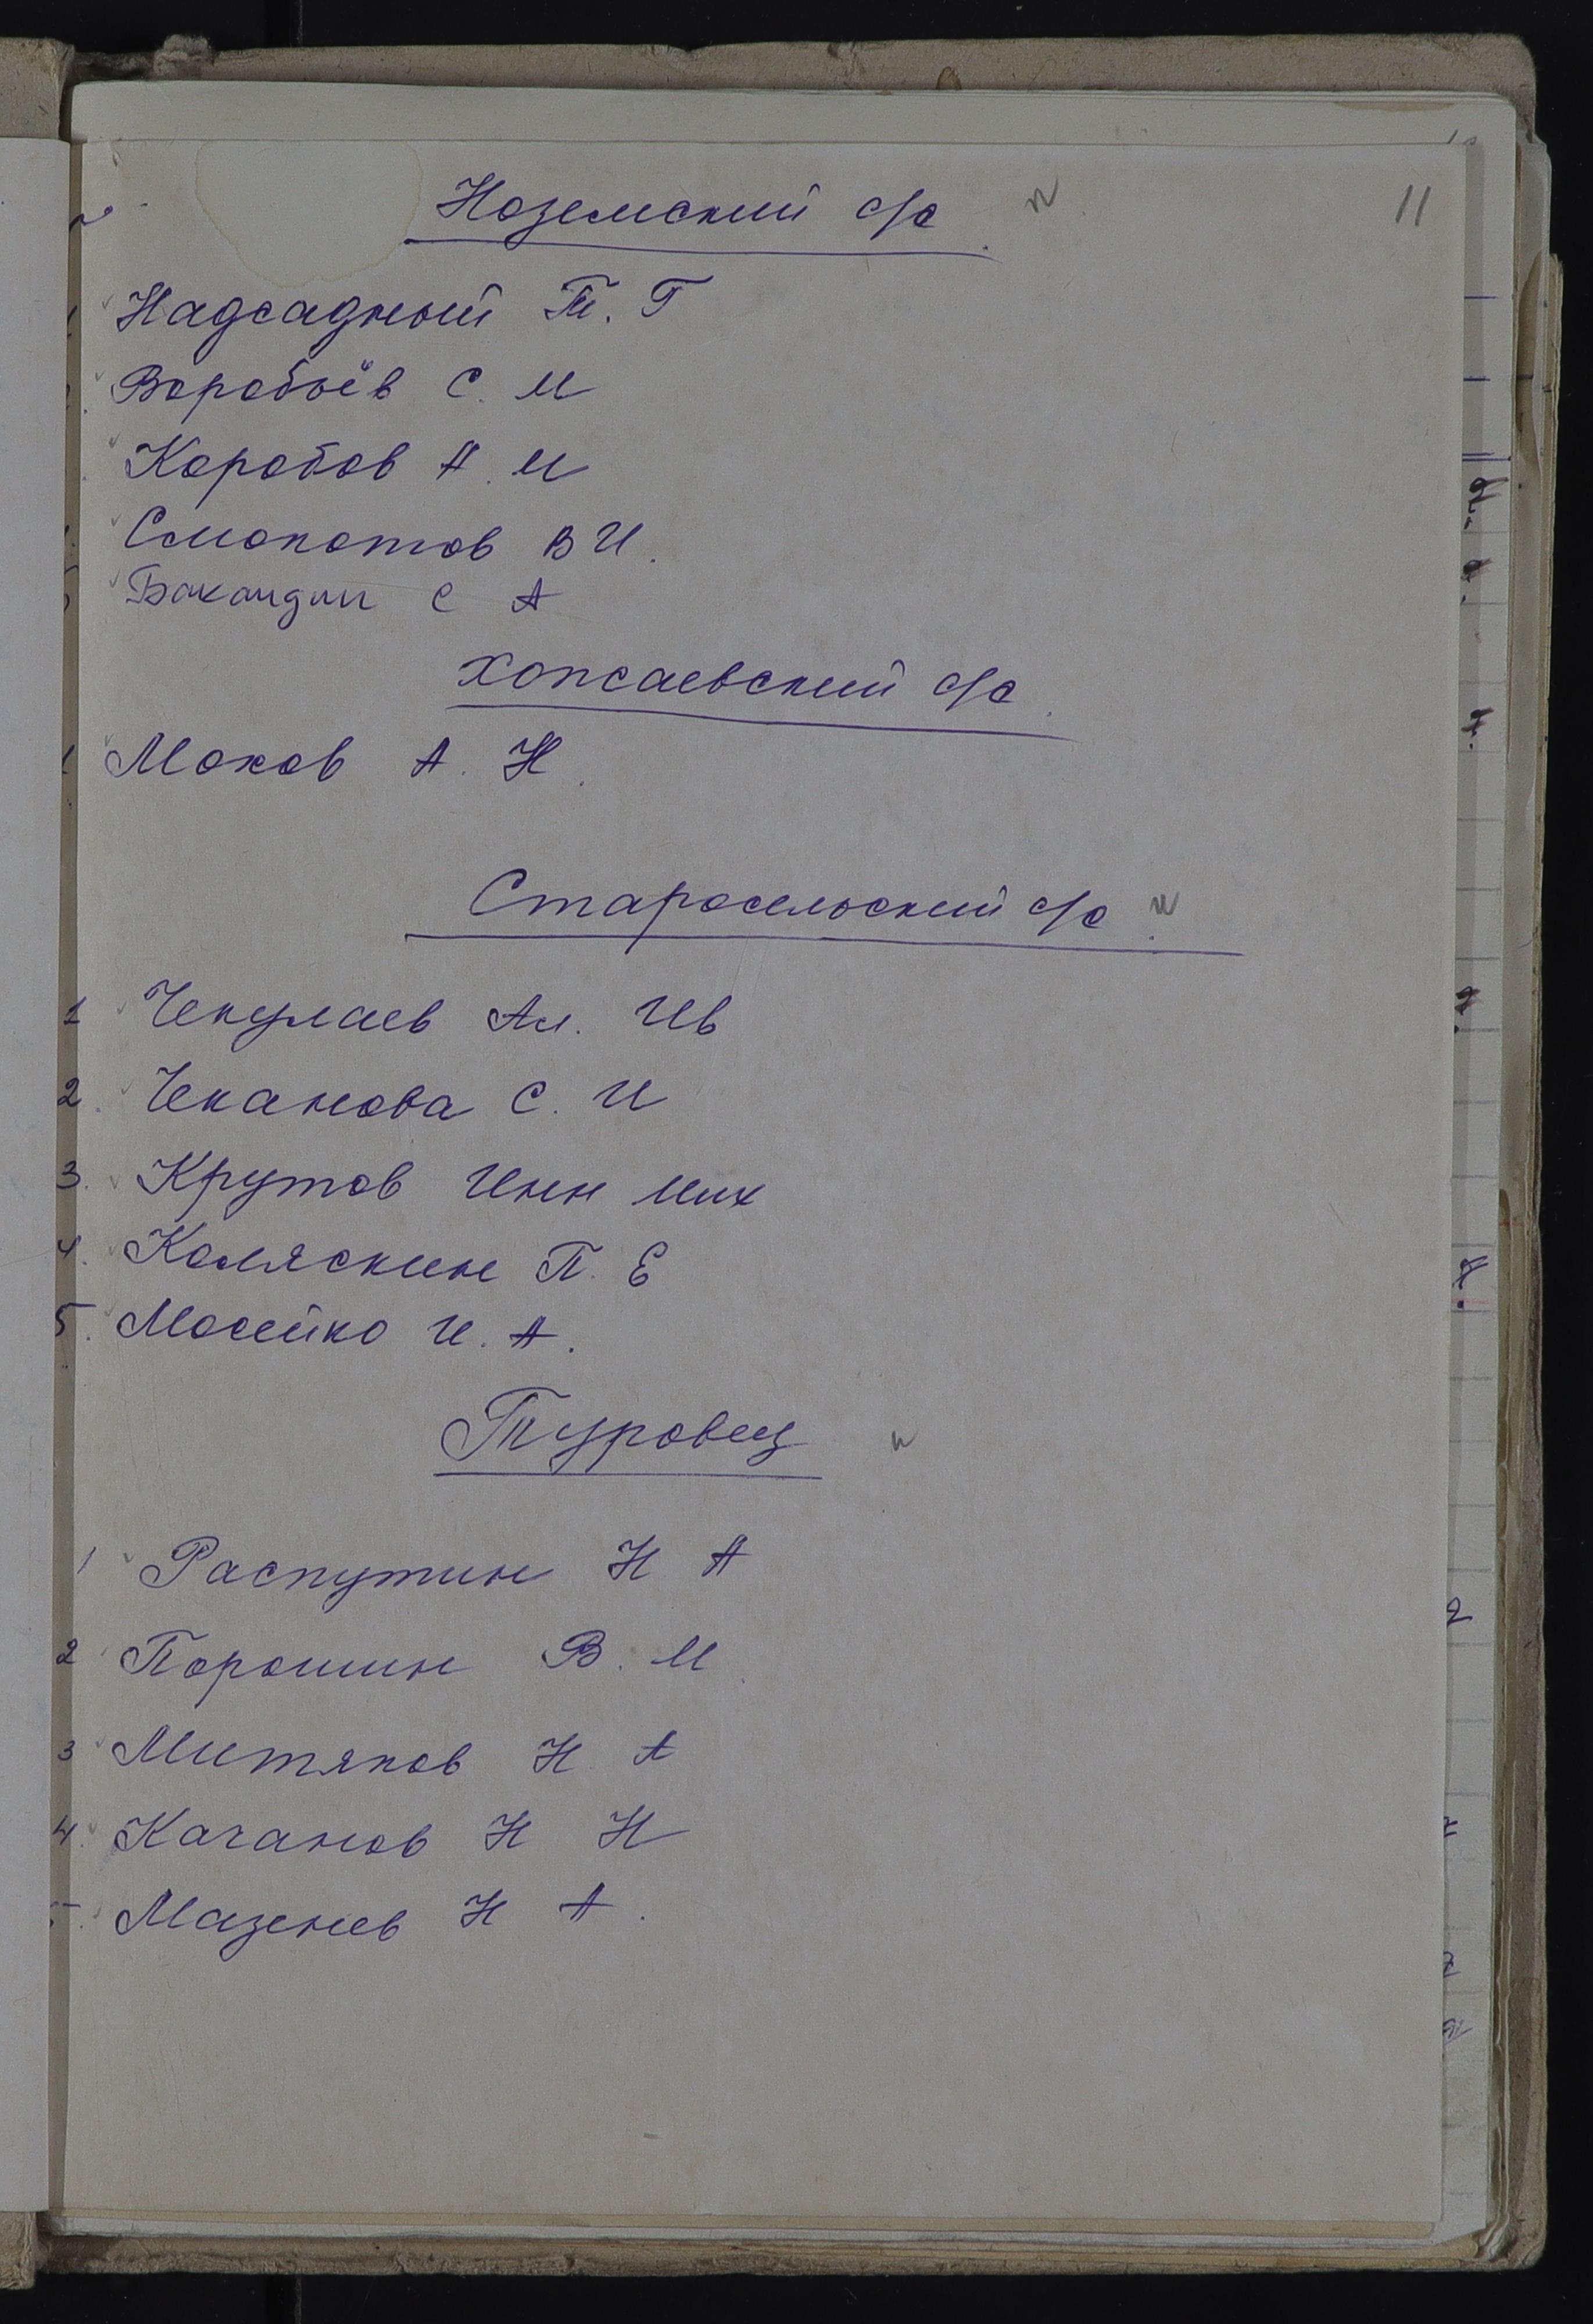 11
Ноземский с/с
Надсадный Т. Г
Воробьёв С. М
Коробов А. М
Смокотов В И.
Бакандин С А
Хопсаевский с/с
1 Моков А. Н.
Старосельский с/с
1 Чекулаев Ал. Ив
2. Чеканова С. И
3. Крутов Инн Мих
4. Коляскин П. Е
5. Мосейко И. А.
Туровец
1 Распутин Н А
2 Порошин В. М
3 Митяков Н. А
4. Качанов Н Н
5. Мазенев Н А.